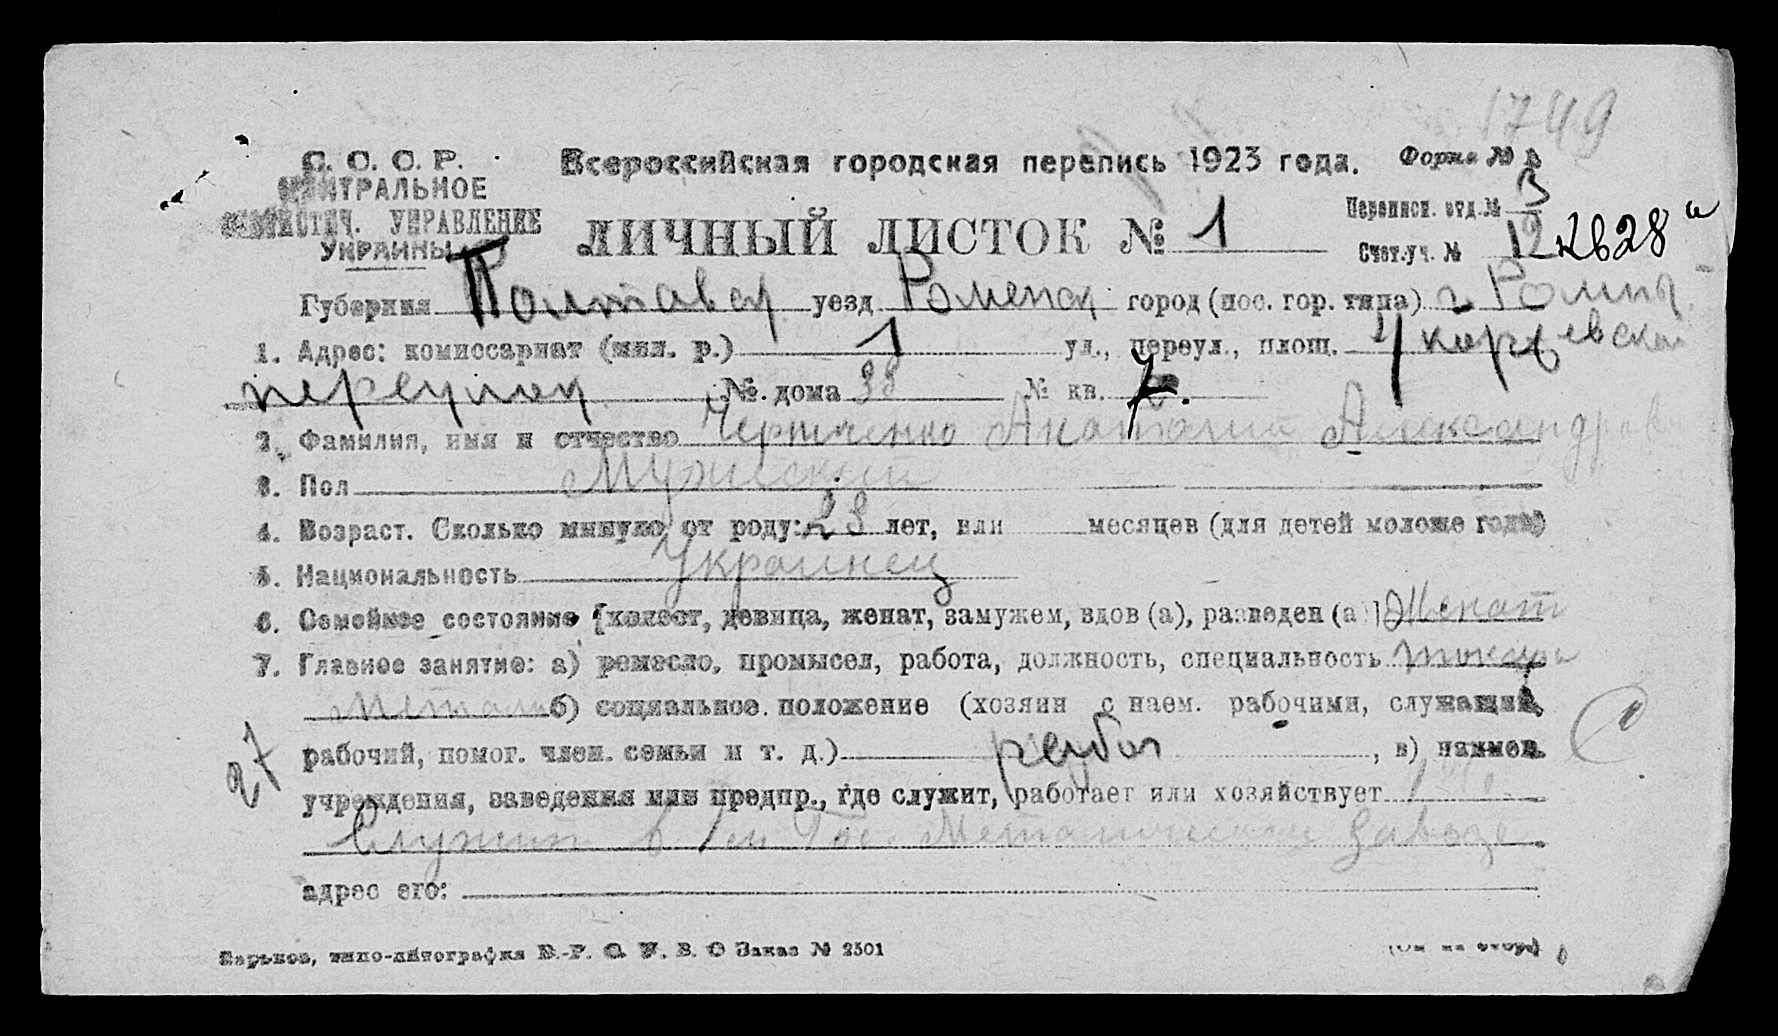 1749
С. С. С. Р. Всероссийская городская перепись 1923 года. Форма №
ЦЕНТРАЛЬНОЕ
СТАТИСТИЧ. УПРАВЛЕНИЕ
УКРАИНЫ
Переписн. отд. № 3
ЛИЧНЫЙ ЛИСТОК № 1
Счет. уч. № 12 2628
Губерния Полтавск уезд Роменск город (пос. гор. типа) г Ромны
1. Адрес: комиссариат (мил. р.) 1 ул., переул., площ.
переулок № дома 38 № кв. 7.
2. Фамилия, имя и отчество Анатолий Александров
3. Пол Мужской
4. Возраст. Сколько минуло от роду: 23 лет, или месяцев (для детей моложе года)
5. Национальность Украинец
6. Семейное состояние [холост, девица, женат, замужем, вдов (а), разведен (а)] Женат
7. Главное занятие: а) ремесло, промысел, работа, должность, специальность токарь
метала б) социальное положение (хозяин с наем. рабочими, служащий,
рабочий, помог. член. семьи и т. д.) рабоч , в) наимен.
27
учреждения, заведения или предпр., где служит, работает или хозяйствует
Служит в 1м Гос. Металическом Заводе
адрес его:
Харьков, типо-литография Заказ № 2501